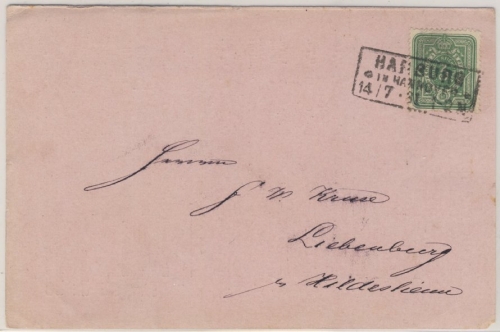 HARBURG
IN HANNOVER
14/7
Herrn
J W Kruse
Liebenburg
Hildesheim